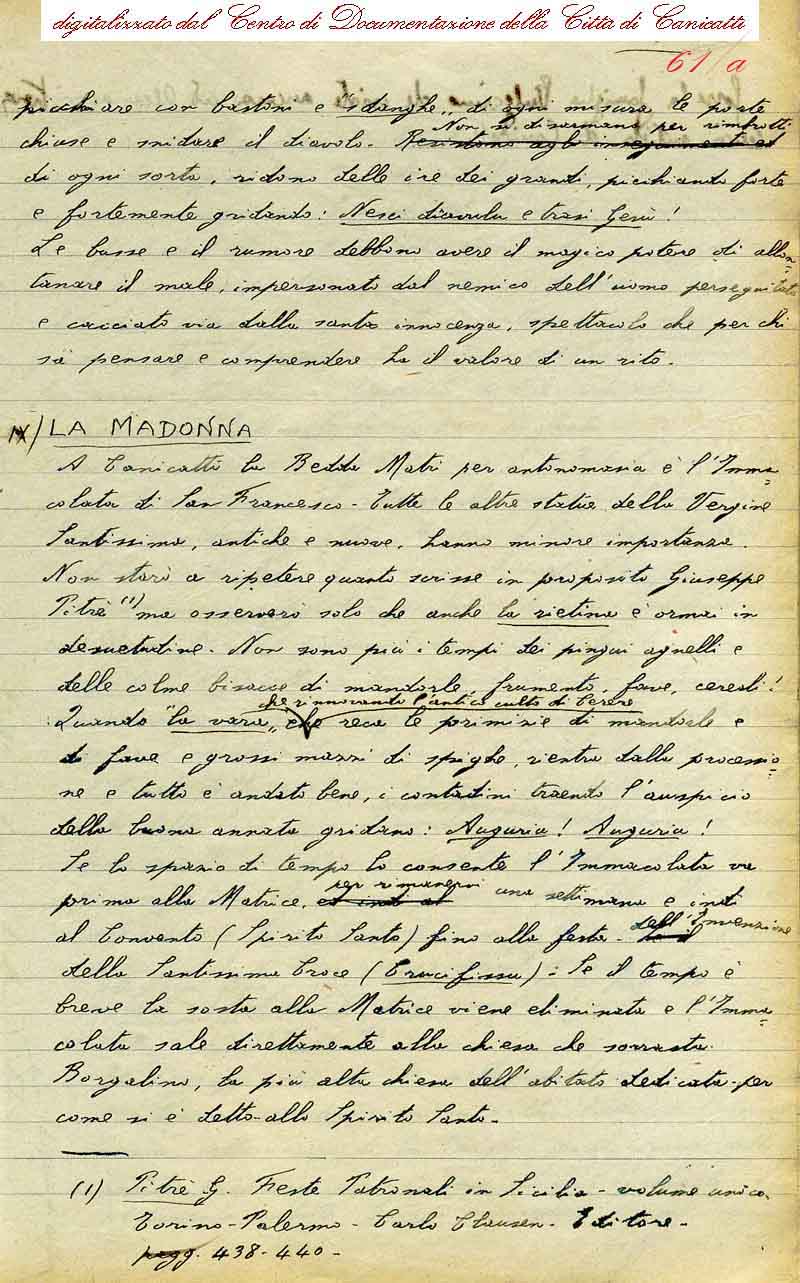 digitalizzato dal Centro di Documentazione della Città di Canicattì
61/a
picchiare con bastoni e "sdanghe„ di ogni misura le porte
Non si disarmano per rimbrotti
chiuse e snidare il diavolo. Resistono agli inseguimenti ed
di ogni sorta, ridono delle ire dei grandi, picchiando forte
e fortemente gridando: Nesci diavulu e trasi Gesù!
Le busse e il rumore debbono avere il magico potere di allon=
tanare il male, impersonato dal nemico dell'uomo perseguitato
e cacciato via dalla santa innocenza, spettacolo che per chi
sa pensare e comprendere ha il valore di un rito.
IX/ LA MADONNA
A Canicattì la Bedda Matri per antonomasia è l'Imma=
colata di San Francesco - Tutte le altre statue della Vergine
Santissima, antiche e nuove, hanno minore importanza.
Non starò a ripetere quanto scrisse in proposito Giuseppe
Pitrè (1) ma osserverò solo che anche la rietina è ormai in
desuetudine. Non sono più i tempi dei pingui agnelli e
delle colme bisacce di mandorle, frumento, fave, cereali!
che rinnovando l'antico culto di Cerere
Quando "la vara„ che reca le primizie di mandorle e
di fave e grossi mazzi di spighe, rientra dalla processio=
ne e tutto è andato bene, i contadini traendo l'auspicio
della buona annata gridano: Auguria! Auguria!
Se lo spazio di tempo lo consente l'Immacolata va
prima alla Matrice, ed indi al per rimanervi una settimana e indi
al Convento (Spirito Santo) fino alla festa dell'Invenzione
della Santissima Croce (Crucifissu). Se il tempo è
breve la sosta alla Matrice viene eliminata e l'Imma=
colata sale direttamente alla chiesa che sovrasta
Borgalino, la più alta chiesa dell'abitato dedicata - per
come si è detto - allo Spirito Santo.
(1) Pitrè G. Feste Patronali in Sicilia - volume unico.
Torino - Palermo - Carlo Clausen - Editore -
pagg. 438-440 -